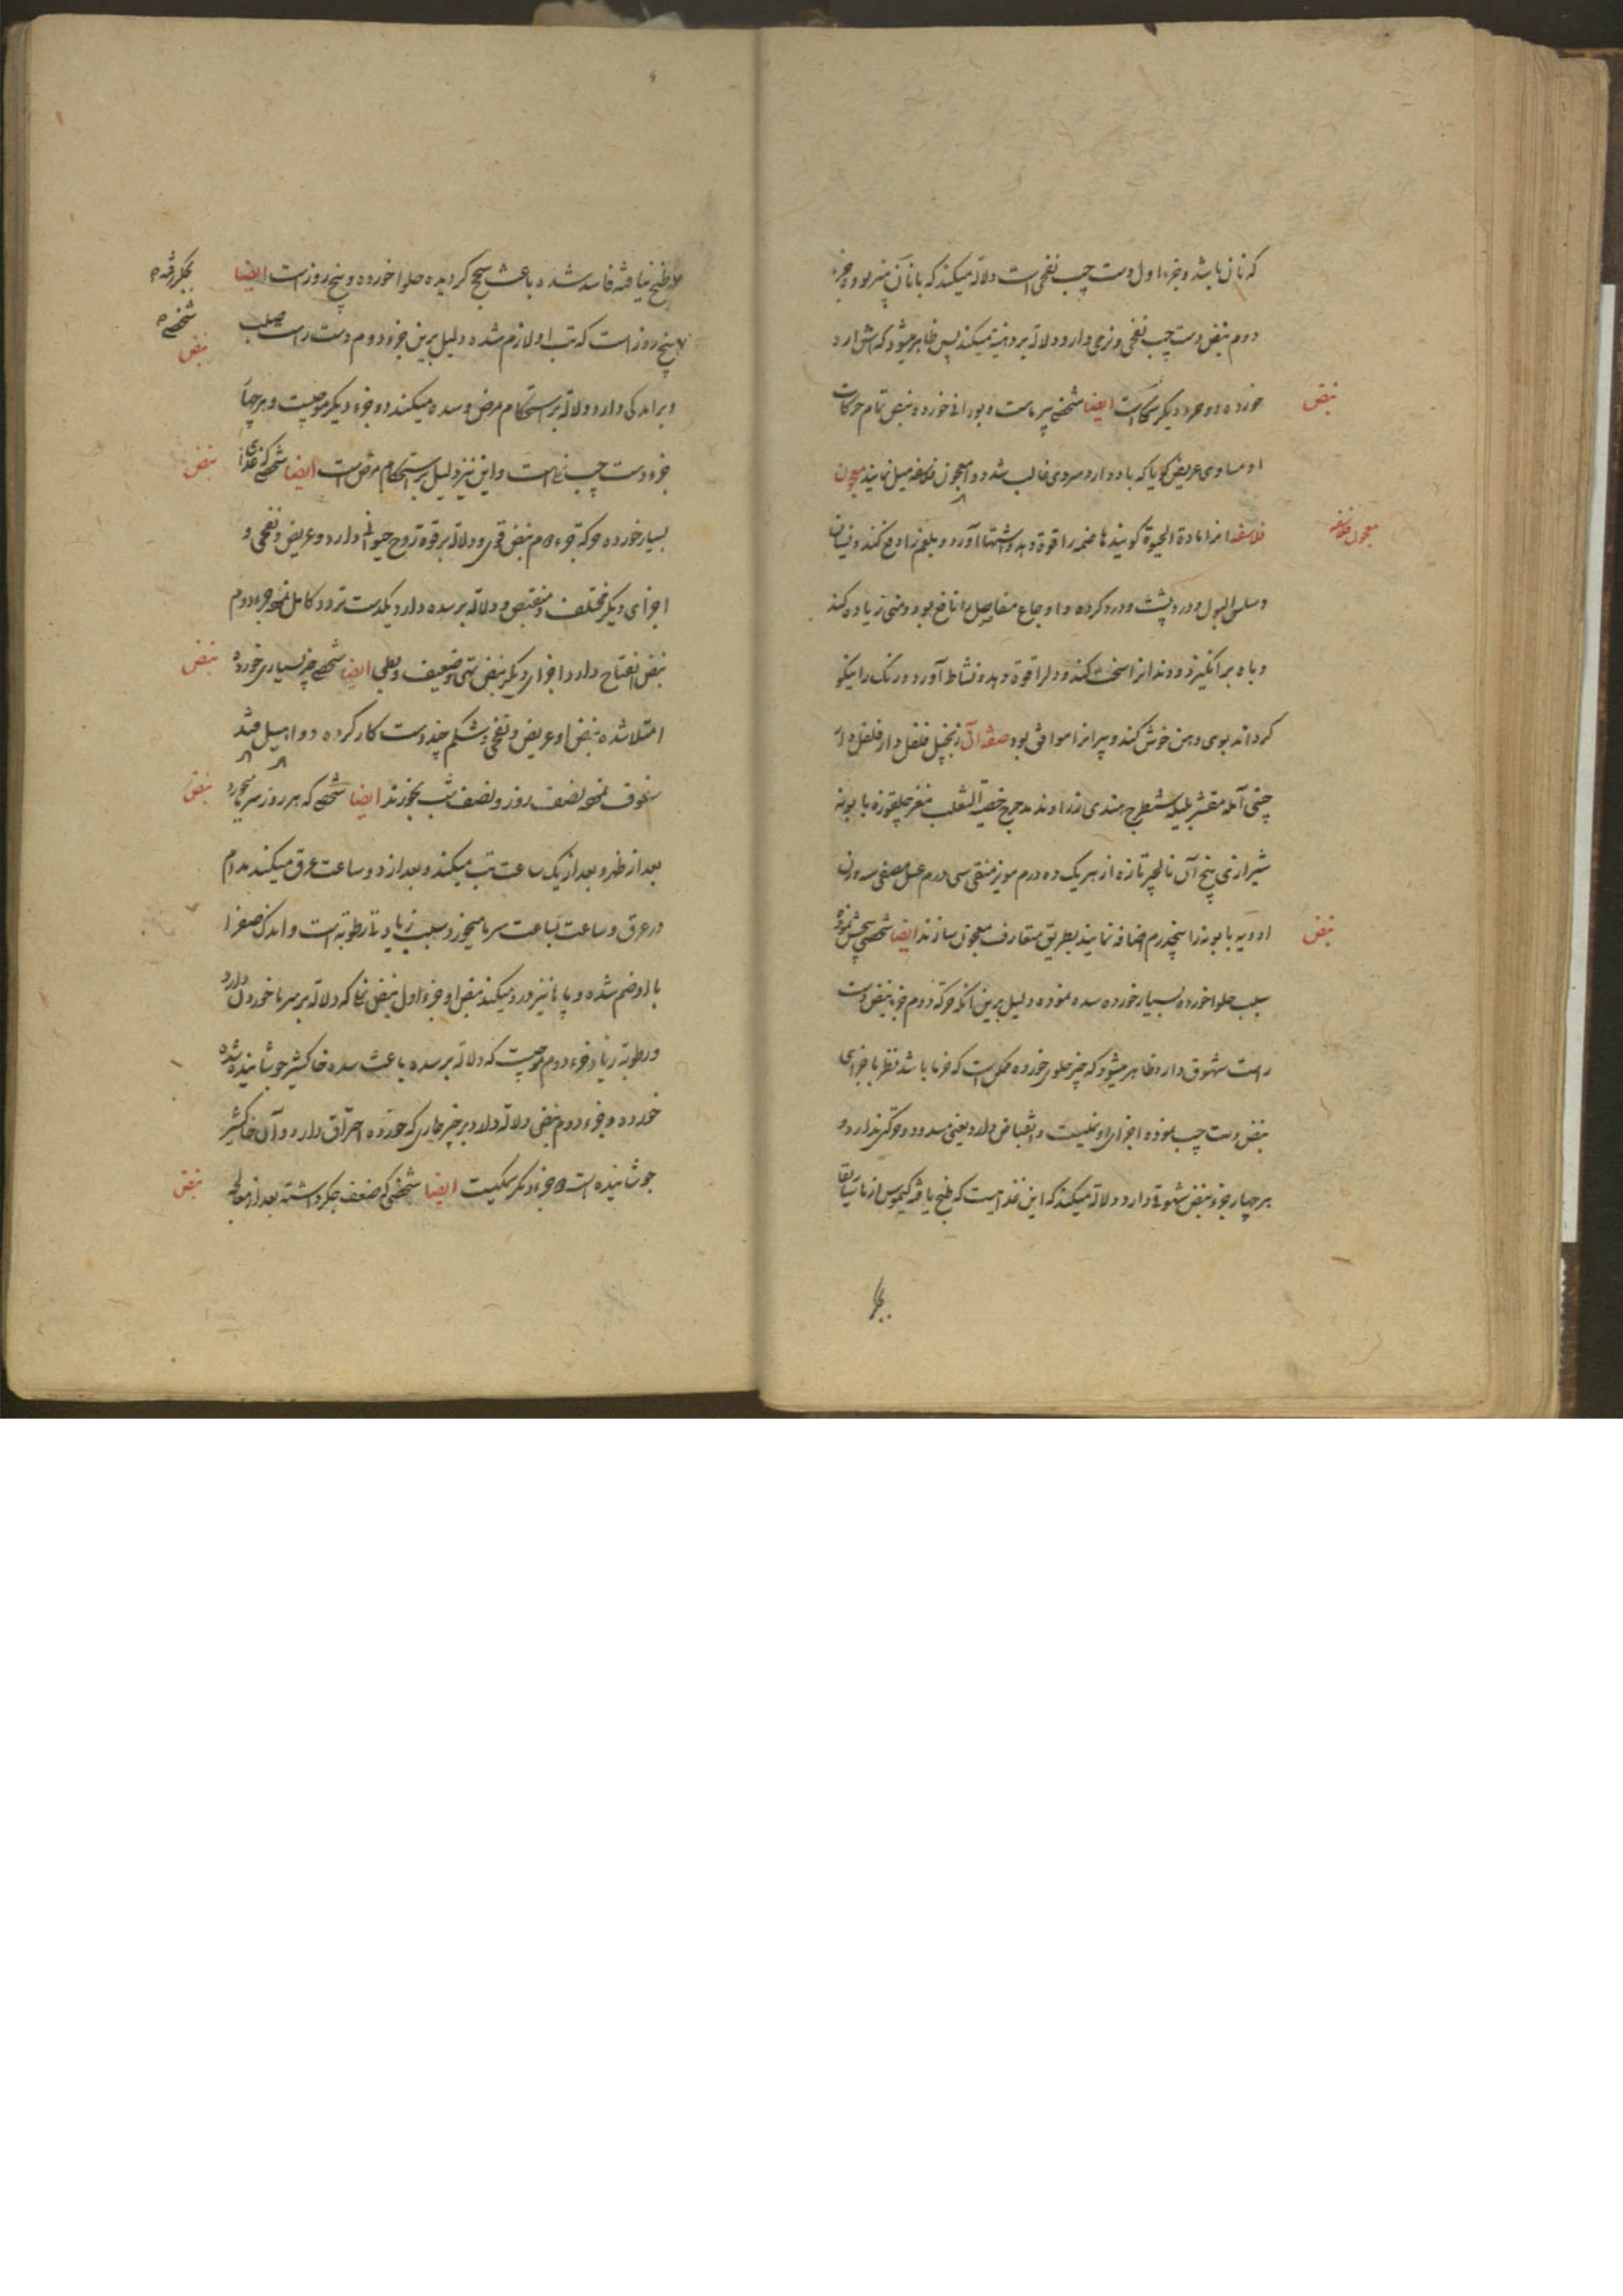 که نان باشد و جزء اول دست چپ نفخی است و دلالة میکند که با نان پنیر بوده و جزء
دوم نبض دست چپ نفخی و نرمی دارد و دلالة بر دهنیة میکند پس ظاهر میشود که آش آرد
خورده و دو جزء دیگر ساکت ایضا شخصی پیر ماست و بورانی خورده و نبض تمام حرکات
نبض
او مساوی عریض گویا که باد دارد و سردی غالب شده دوا معجون فلاسفه میل نمایند معجون
فلاسفه انرا مادة الحیوة گویند هاضمه را قوة دهد و اشتها آورد و بلغم را دفع کند و نسیان
معجون فلاسفه
و سلس البول و درد پشت و درد گرده و اوجاع مفاصل را نافع بود و منی زیاده کند
و باه برانگیزد و دندانرا سخت کند و دلرا قوة دهد و نشاط آورد و رنک را نیکو
گرداند بوی دهن خوش کند و پیرانرا موافق بود صفة آن زنجبیل فلفل دارفلفل دار
چینی آمله مقشر بلیله شیطرج هندی زراوند مدحرج خصیة الثعلب مغز چلغوزه بابونه
شیرازی بیخ آن نارجیل تازه از هر یک ده درم مویز منقی سی درم عسل مصفی سه وزن
ادویه بابونه را پنجدرم اضافه نمایند بطریق متعارف معجون سازند ایضا شخصی
نبض
بسبب حلوا خورده بسیار خورده سده نموده دلیل برین آنکه حرکة دوم جزء نبض دست
راست شهوق دارد ظاهر میشود که چیز حلوی خورده ممکن است که خرما باشد نظر باجزای
نبض دست چپ نموده اجزای او نملیست و انقباض دارد یعنی مسدود و حرکة ندارد و
هر چهار جزء نبض شهوق دارد و دلالة میکند که این غذاییست که طبخ یافته کیموس از
بجگر
طبخ نیافته فاسد شده باعث سحج گردیده حلوا خورده و پنج روز است ایضا
بجگر رفته
شخصی
پنج روز است که تب او لازم شده دلیل برین جزء دوم دست راست صلب
نبض
دلالة بر استحکام مرض و سده میکند و جزء دیگر موجیست و هر چهار
جزء دست چپ است و این نیز دلیل بر استحکام مرض است ایضا شخصی که غذای
نبض
بسیار خورده حرکة جزء م نبض قوی و دلالة بر قوة روح حیوانی دارد و عریض و نفخی و
اجزای دیگر مختلف و منقبض و دلالة بر سده دارد یکدست تردد کامل نموده جزء دوم
نبض انفتاح دارد اجزای دیگر نبض تهی و ضعیف و بطی ایضا شخصی چیز بسیاری خورده
نبض
امتلا شده نبض او عریض و نفخی و شکم چند دست کار کرده دوا
سفوف نصف روز و نصف شب بخورند ایضا شخصی که هر روز سرما میخورد
نبض
بعد از ظهر و بعد از یک ساعت تب میکند و بعد از دو ساعت عرق میکند مدام
در عرق و ساعت بساعت سرما میخورد و سبب زیادتی رطوبة است و اندک صفرا
با او ضم شده و پاها نیز درد میکند نبض او جزء اول نبض که دلالة بر سرما خوردن دارد
و رطوبة زیاد و جزء دوم موجیست که دلالة بر سده باعث سده خاکشیر جوشانیده شده
خورده و جزء دوم نبض دلالة دارد بر چیز که خورده احتراق دارد و آن خاکشیر
جوشانیده است جزء دیگر ایضا شخصی که ضعف جگر داشته بعد از معالجه
نبض